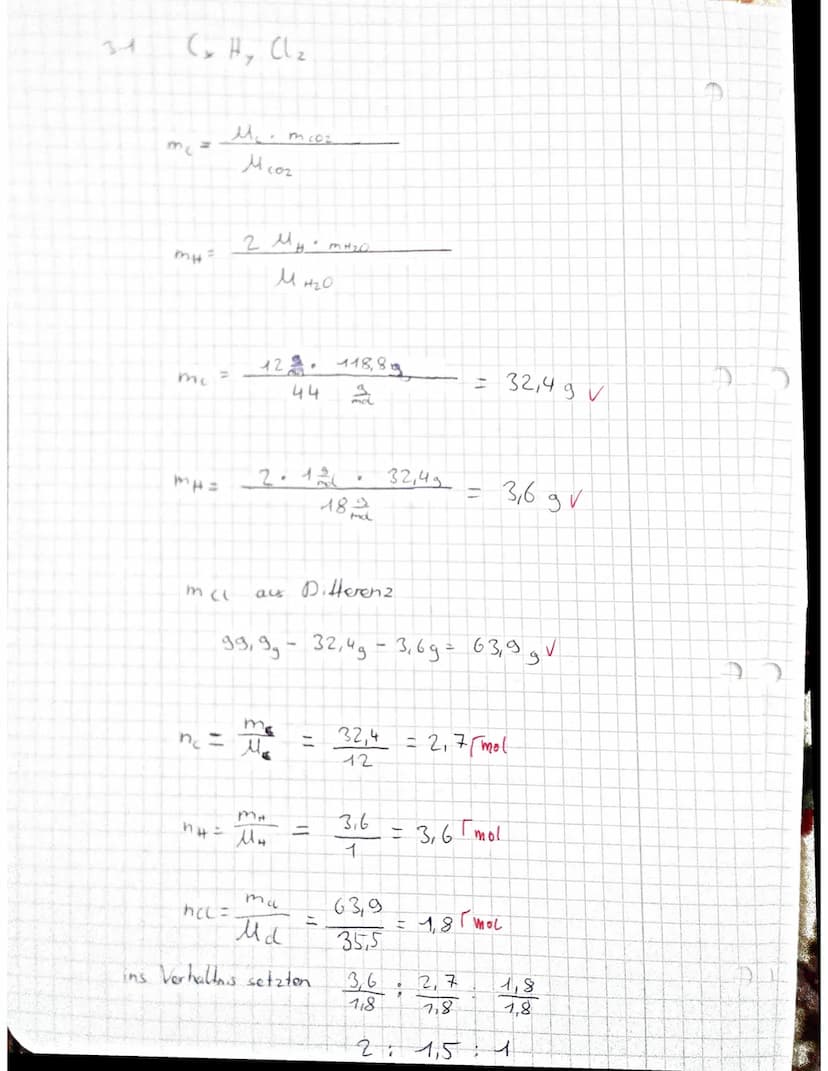 3.1 CxHyClz
mC = MC · mCO2 / MCO2
mH = 2 MH · mH2O / MH2O
mC = 12 g/mol · 118,8g / 44 g/mol = 32,4 g ✓
mH = 2 · 1 g/mol · 32,4g / 18 g/mol = 3,6 g ✓
mCl aus Differenz
99,9g - 32,4g - 3,6g = 63,9 g ✓
nC = mC / MC = 32,4 / 12 = 2,7 Γmol
nH = mH / MH = 3,6 / 1 = 3,6 Γmol
nCl = mCl / MCl = 63,9 / 35,5 = 1,8 Γmol
ins Verhaltnis setzten 3,6/1,8 : 2,7/1,8 : 1,8/1,8
2 : 1,5 : 1